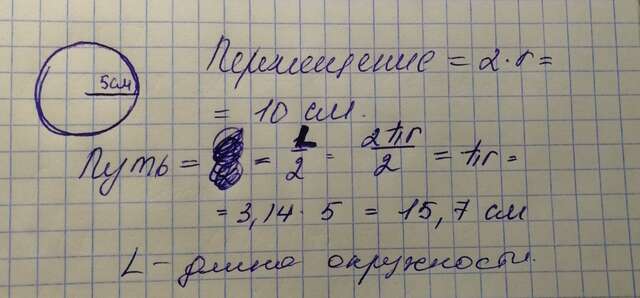 5см
Перемещение = 2·r =
= 10 см.
Путь = = L/2 = 2πr/2 = πr =
= 3,14·5 = 15,7 см
L – длина окружности.